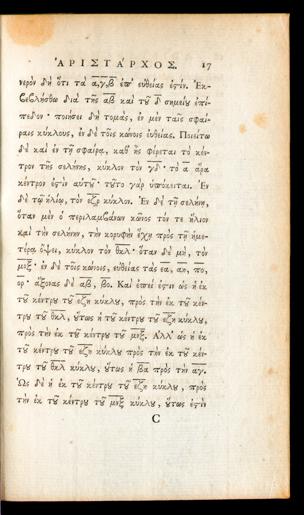 ἈΡΙΣΤΑΡΧΟΣ. 17
νερὸν δὴ ὅτι τὰ α,γ,β ἐπ' εὐθείας ἐστίν. Ἐκ-
βεβλήσθω διὰ τῆς αβ καὶ τοῦ δ σημείου ἐπί-
πεδον· ποιήσει δὴ τομὰς, ἐν μὲν ταῖς σφαί-
ραις κύκλους, ἐν δὲ τοῖς κώνοις εὐθείας. Ποιείτω
δὲ καὶ ἐν τῇ σφαίρᾳ, καθ' ἧς φέρεται τὸ κέν-
τρον τῆς σελήνης, κύκλον τὸν γδ· τὸ α ἄρα
κέντρον ἐστὶν αὐτοῦ· τοῦτο γὰρ ὑπόκειται. Ἐν
δὲ τῷ ἡλίῳ, τὸν εζρ κύκλον. Ἐν δὲ τῇ σελήνῃ,
ὅταν μὲν ὁ περιλαμβάνων κῶνος τόν τε ἥλιον
καὶ τὴν σελήνην, τὴν κορυφὴν ἔχῃ πρὸς τῇ ἡμε-
τέρᾳ ὄψει, κύκλον τὸν θκλ· ὅταν δὲ μὴ, τὸν
μνξ· ἐν δὲ τοῖς κώνοις, εὐθείας τὰς εα, αη, πο,
ορ· ἄξονας δὲ αβ, βο. Καὶ ἐπεί ἐστιν ὡς ἡ ἐκ
τοῦ κέντρου τοῦ εζη κύκλου, πρὸς τὴν ἐκ τοῦ κέν-
τρου τοῦ θκλ, οὕτως ἡ τοῦ κέντρου τοῦ εζη κύκλου,
πρὸς τὴν ἐκ τοῦ κέντρου τοῦ μνξ. Ἀλλ' ὡς ἡ ἐκ
τοῦ κέντρου τοῦ εζη κύκλου πρὸς τὴν ἐκ τοῦ κέν-
τρου τοῦ θκλ κύκλου, οὕτως ἡ βα πρὸς τὴν αγ.
Ὡς δὲ ἡ ἐκ τοῦ κέντρου τοῦ εζη κύκλου, πρὸς
τὴν ἐκ τοῦ κέντρου τοῦ μνξ κύκλου, οὕτως ἐστὶν
C